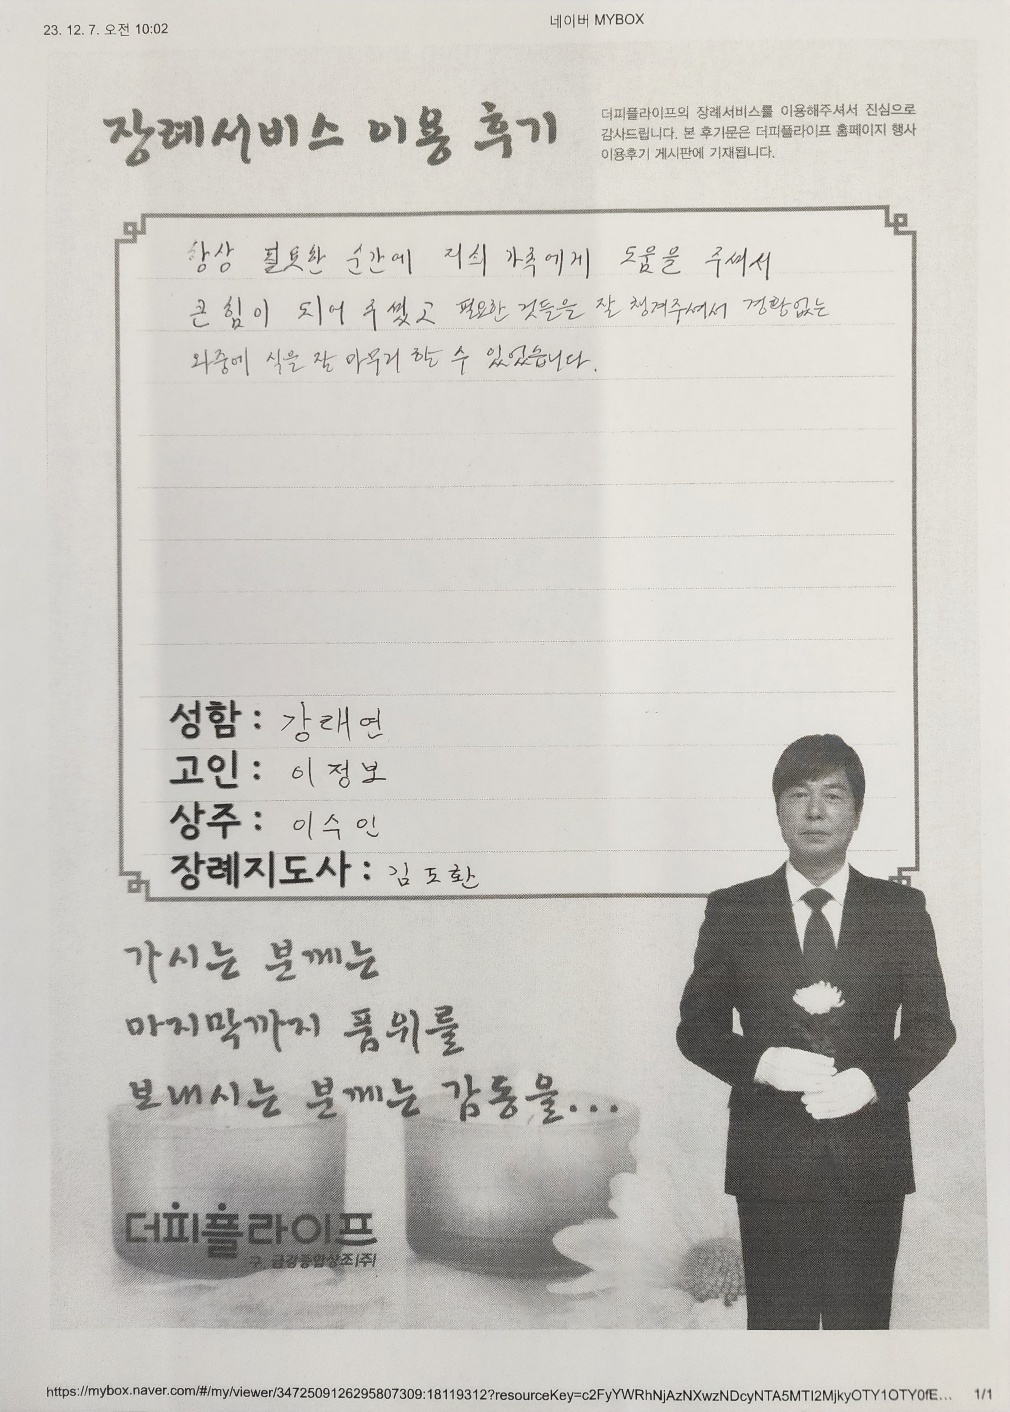 23. 12. 7. 오전 10:02
네이버 MYBOX
장례서비스 이용 후기
더피플라이프의 장례서비스를 이용해주셔서 진심으로
감사드립니다. 본 후기문은 더피플라이프 홈페이지 행사
이용후기 게시판에 기재됩니다.
항상 필요한 순간에 저희 가족에게 도움을 주셔서
큰 힘이 되어 주셨고 필요한 것들을 잘 챙겨주셔서 경황없는
와중에 식을 잘 마무리 할 수 있었습니다.
성함 : 강태연
고인 : 이정보
상주 : 이수인
장례지도사 : 김도환
가시는 분께는
마지막까지 품위를
보내시는 분께는 감동을...
더피플라이프
구. 금강종합상조(주)
https://mybox.naver.com/#/my/viewer/3472509126295807309:18119312?resourceKey=c2FyYWRhNjAzNXwzNDcyNTA5MTI2MjkyOTY1OTY0fE... 1/1